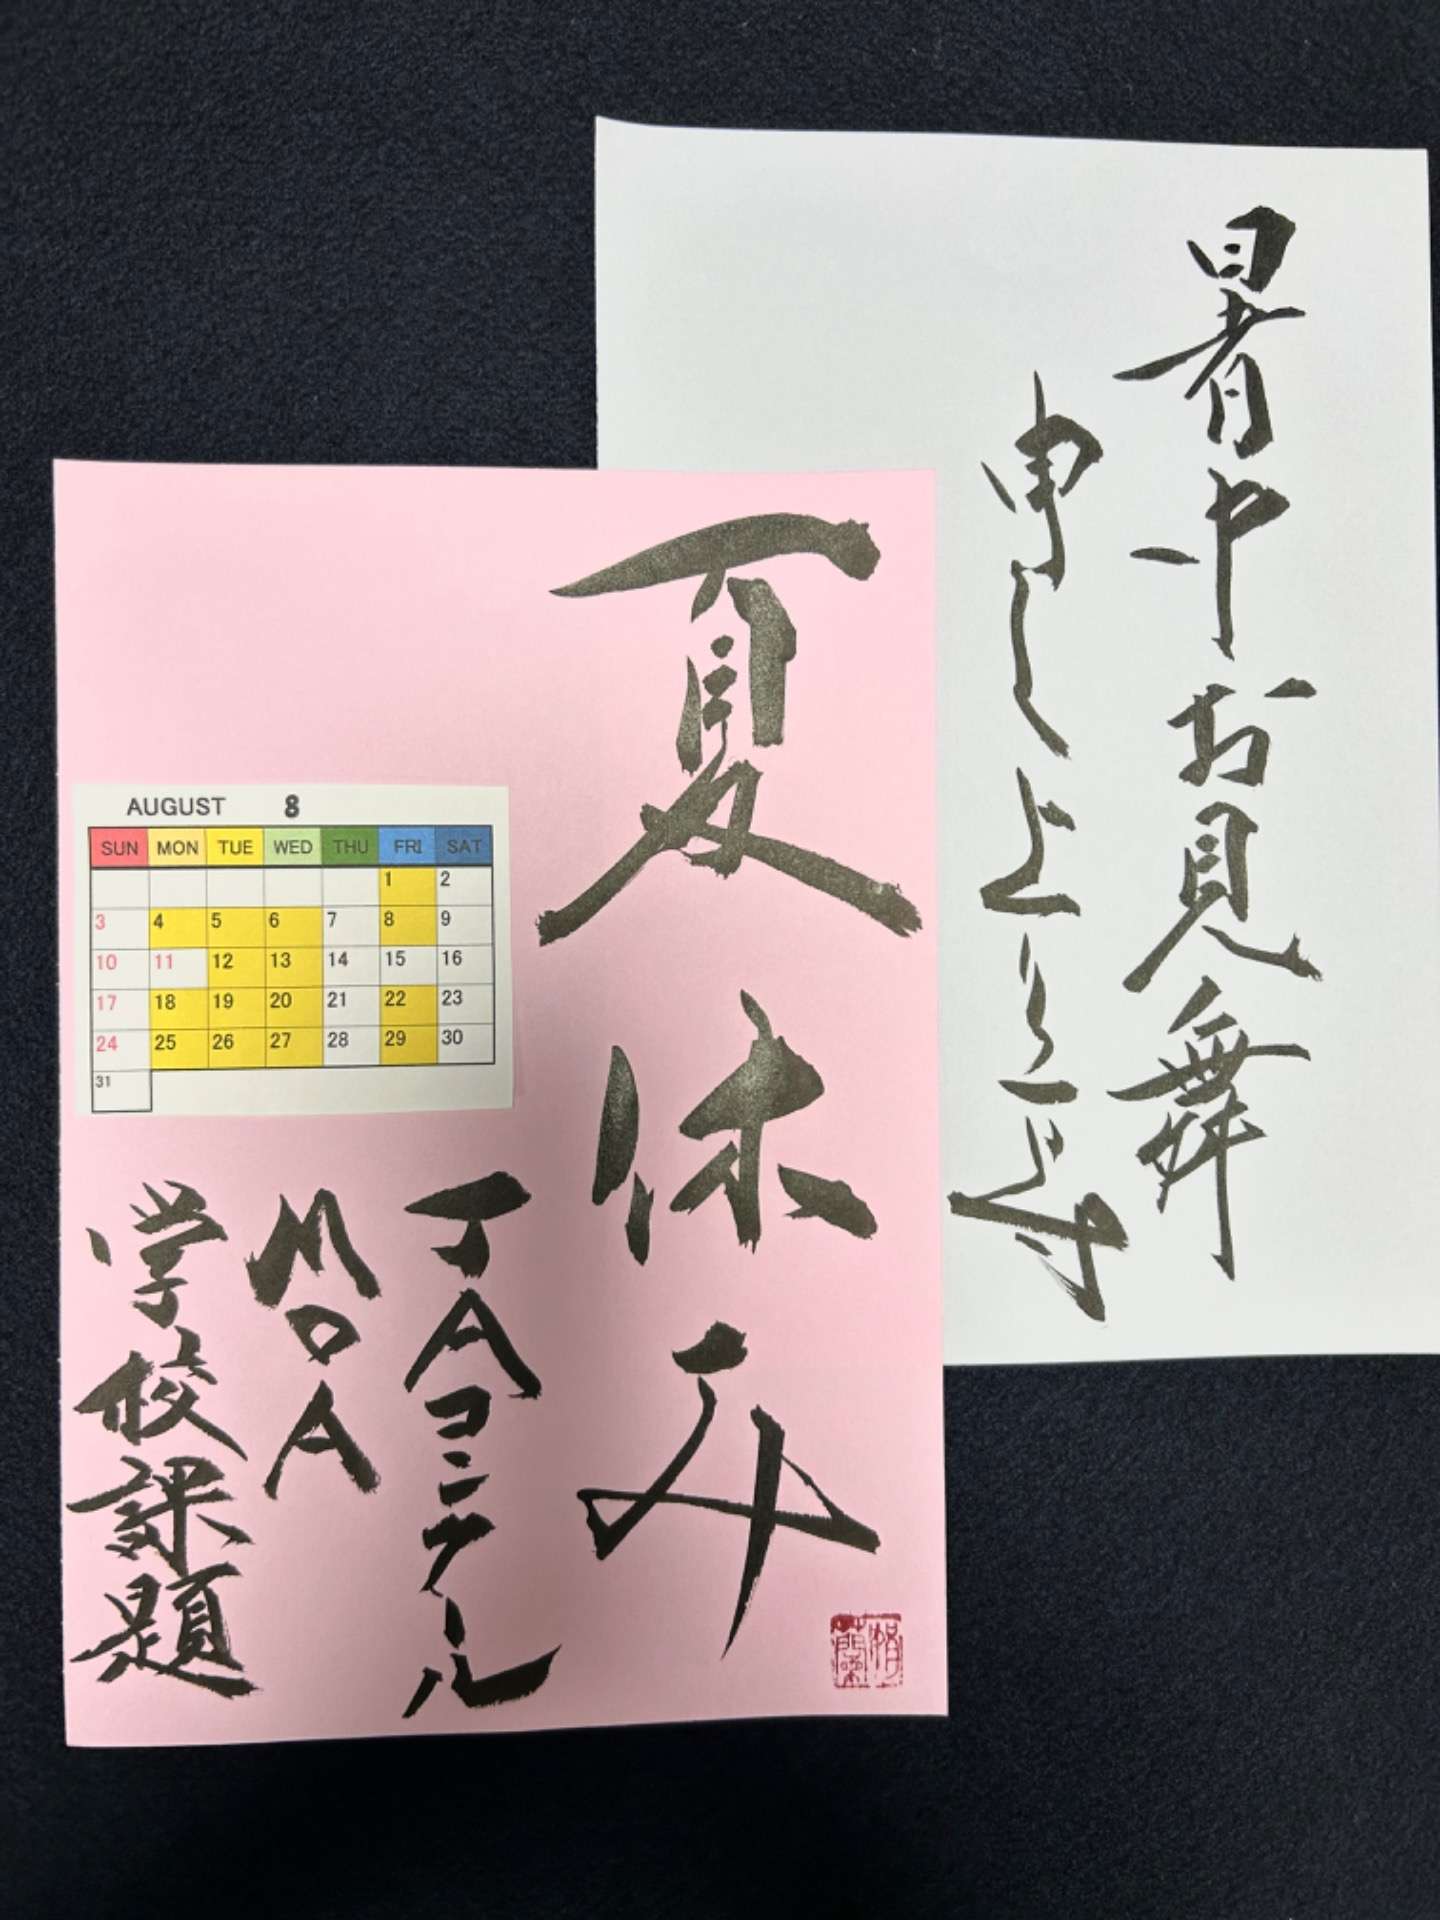 暑中お見舞
申し上げます
夏休み
JAコンクール
MOA
学校課題
AUGUST 8
SUN MON TUE WED THU FRI SAT
1 2
3 4 5 6 7 8 9
10 11 12 13 14 15 16
17 18 19 20 21 22 23
24 25 26 27 28 29 30
31